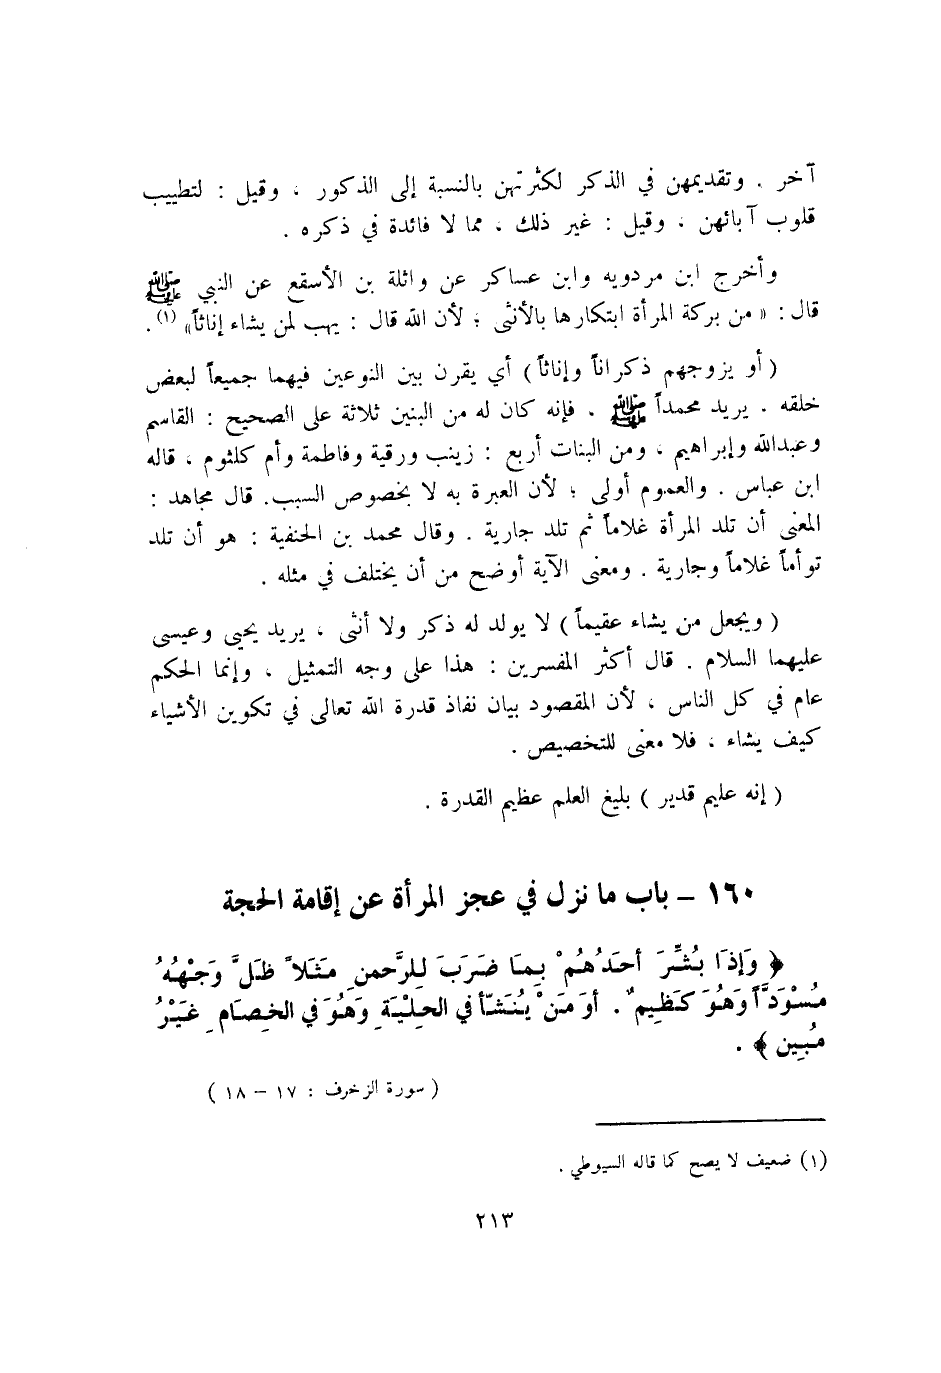 آخر . وتقديمهن في الذكر لكثرتهن بالنسبة إلى الذكور ، وقيل : لتطييب
قلوب آبائهن ، وقيل : غير ذلك ، مما لا فائدة في ذكره .
وأخرج ابن مردويه وابن عساكر عن واثلة بن الأسقع عن النبي ﷺ
قال : « من بركة المرأة ابتكارها بالأنثى ؛ لأن الله قال : يهب لمن يشاء إناثاً» (١) .
( أو يزوجهم ذكراناً وإناثاً ) أي يقرن بين النوعين فيهما جميعاً لبعض
خلقه . يريد محمداً ﷺ . فإنه كان له من البنين ثلاثة على الصحيح : القاسم
وعبدالله وإبراهيم ، ومن البنات أربع : زينب ورقية وفاطمة وأم كلثوم ، قاله
ابن عباس . والعموم أولى ؛ لأن العبرة به لا بخصوص السبب. قال مجاهد :
المعنى أن تلد المرأة غلاماً ثم تلد جارية . وقال محمد بن الحنفية : هو أن تلد
توأماً غلاماً وجارية . ومعنى الآية أوضح من أن يختلف في مثله .
( ويجعل من يشاء عقيماً ) لا يولد له ذكر ولا أنثى ، يريد يحيى وعيسى
عليهما السلام . قال أكثر المفسرين : هذا على وجه التمثيل ، وإنما الحكم
عام في كل الناس ، لأن المقصود بيان نفاذ قدرة الله تعالى في تكوين الأشياء
كيف يشاء ، فلا معنى للتخصيص .
( إنه عليم قدير ) بليغ العلم عظيم القدرة .
١٦٠ – باب ما نزل في عجز المرأة عن إقامة الحجة
﴿ وَإِذَا بُشِّرَ أحَدُهُمْ بِمَا ضَرَبَ لِلرَّحمنِ مَثَلاً ظَلَّ وَجْهُهُ
مُسْوَدَّاً وَهُوَ كَظِيمٌ . أوَ مَنْ يُنَشَّأ في الحِلْيَةِ وَهُوَ في الخِصَامِ غَيْرُ
مُبِين ﴾ .
( سورة الزخرف : ١٧ – ١٨ )
(١) ضعيف لا يصح كما قاله السيوطي .
٢١٣